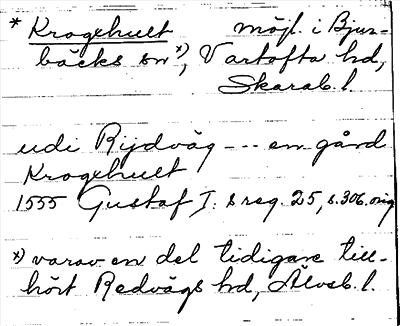 * Krogehult möjl. i Bjur-
bäcks sn *), Vartofta hd,
Skarab. l.
udi Rijdväg --- en gård
Krogehult
1555 Gustaf I:s reg. 25, s. 306. orig
*) varav en del tidigare till-
hört Redvägs hd, Älvsb. l.